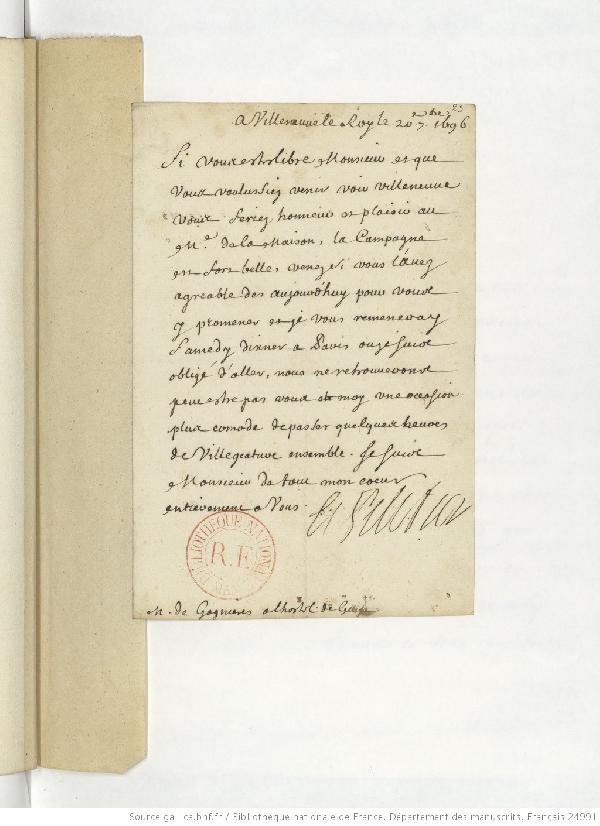 23
a Villeneuve le Roy le 20 7bre 1696
Si vous estes libre Monsieur et que
vous voulussiez venir voir villeneuve
vous feriez honneur et plaisir au
Me. de la Maison, la Campagne
est fort belle, venez si vous l'avez
agreable des aujourd'huy pour vous
y promener et je vous remeneray
samedy disner a Paris ou je suis
obligé d'aller, nous ne retrouverons
peut estre pas vous et moy une occasion
plus comode de passer quelques heures
de Villegeature ensemble. Je suis
Monsieur de tout mon coeur
entierement a Vous.
BIBLIOTHEQUE NATIONALE
R.F.
M. de Gagnieres a lhostel de Guise
Source gallica.bnf.fr / Bibliothèque nationale de France. Département des manuscrits. Français 24991